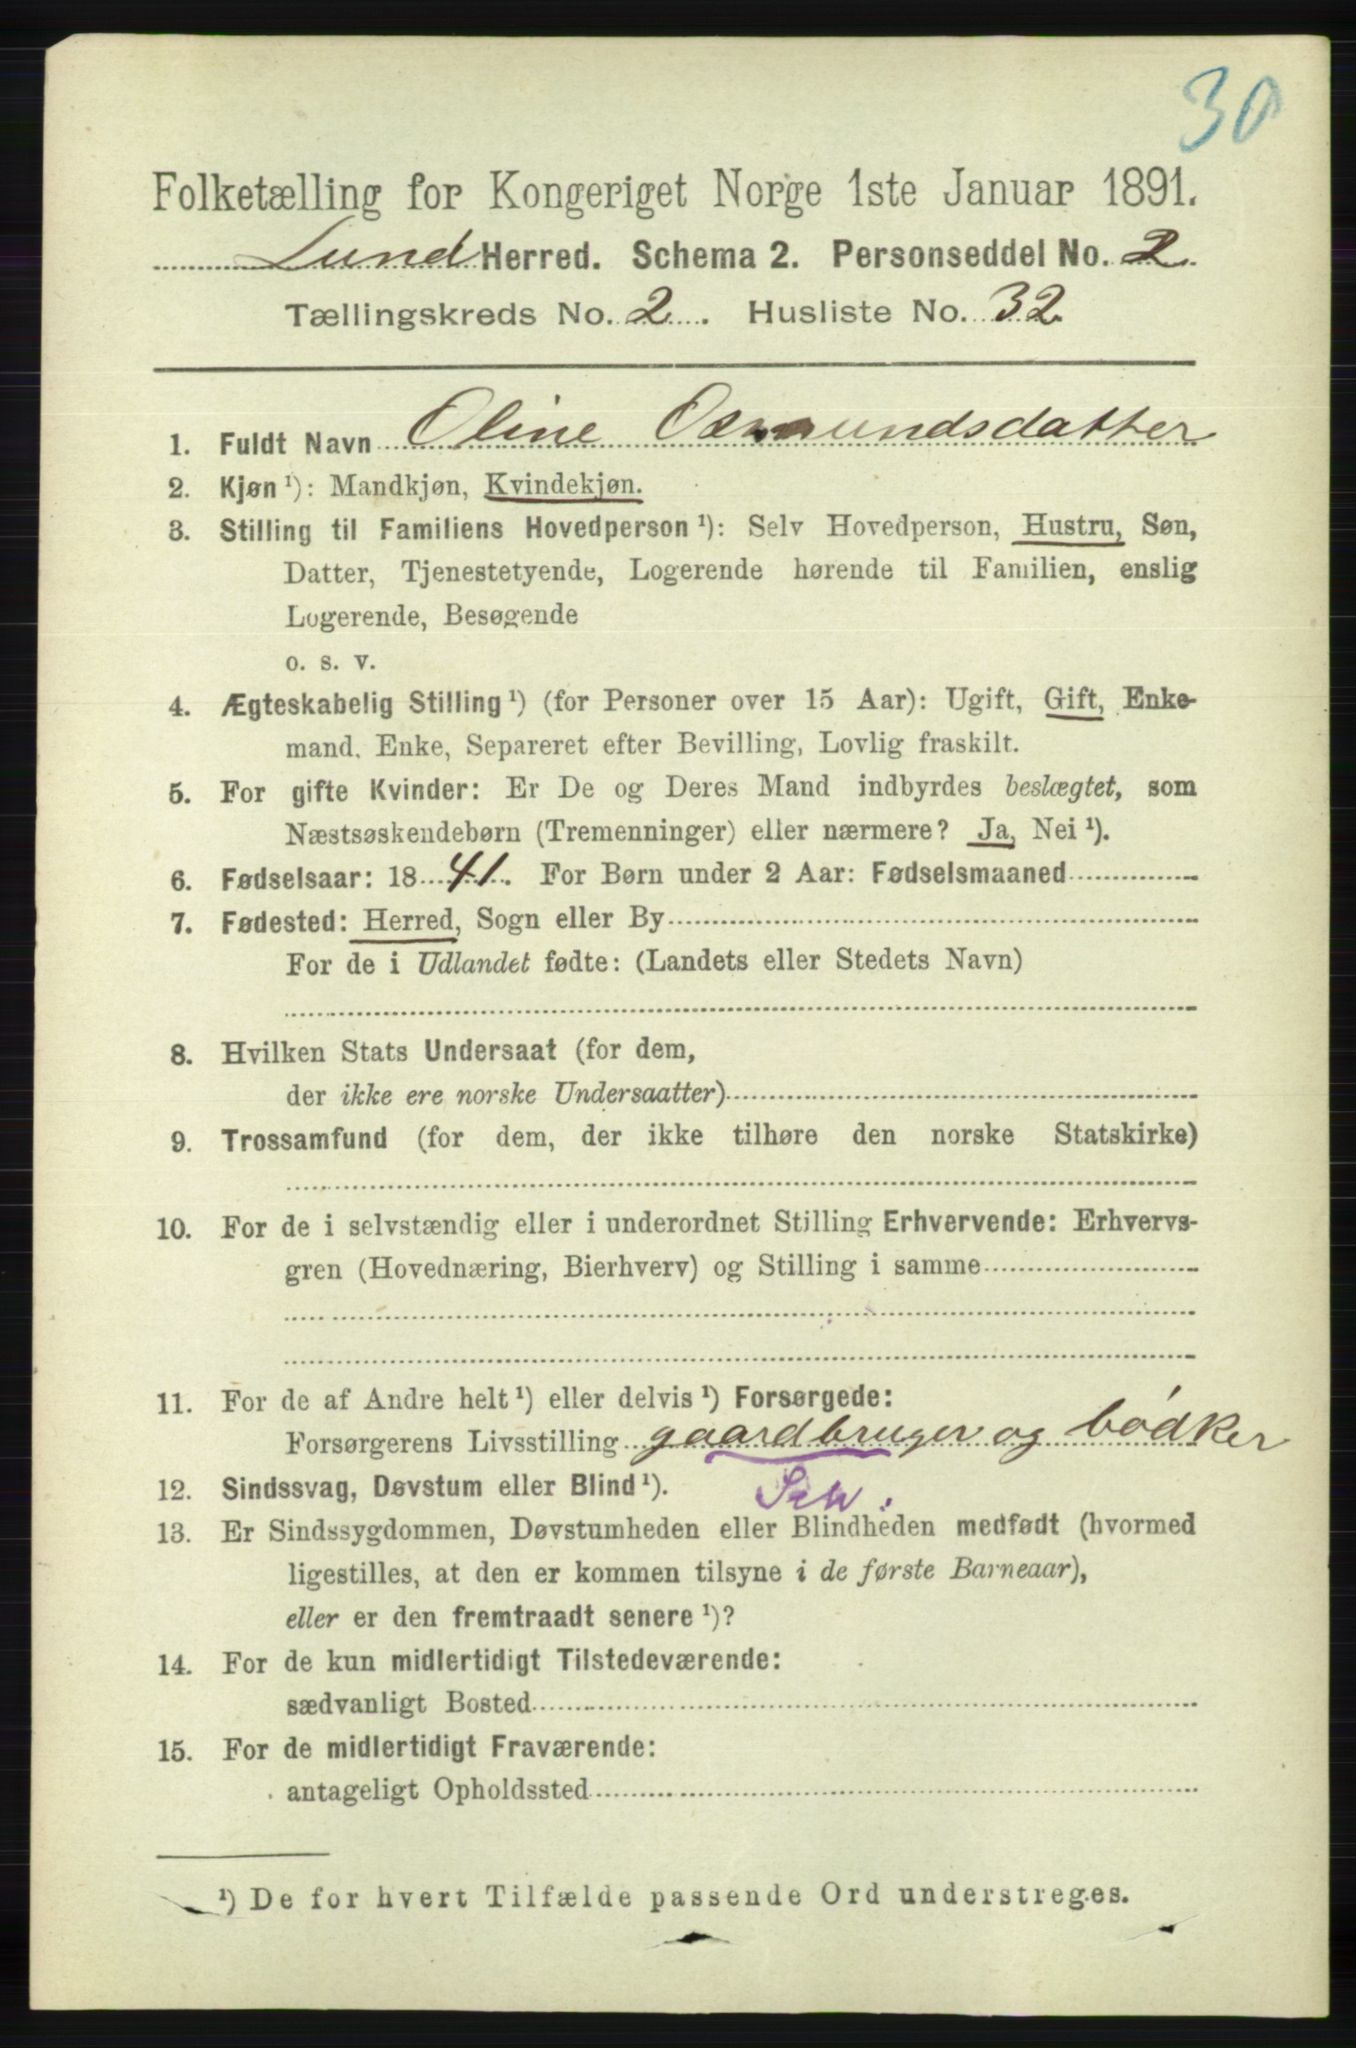 30
Folketælling for Kongeriget Norge 1ste Januar 1891.
Lund Herred. Schema 2. Personseddel No. 2.
Tællingskreds No. 2. Husliste No. 32
1. Fuldt Navn Oline Osmundsdatter
2. Kjøn ¹): Mandkjøn, Kvindekjøn.
3. Stilling til Familiens Hovedperson ¹): Selv Hovedperson, Hustru, Søn,
Datter, Tjenestetyende, Logerende hørende til Familien, enslig
Logerende, Besøgende
o. s. v.
4. Ægteskabelig Stilling ¹) (for Personer over 15 Aar): Ugift, Gift, Enke-
mand, Enke, Separeret efter Bevilling, Lovlig fraskilt.
5. For gifte Kvinder: Er De og Deres Mand indbyrdes beslægtet, som
Næstsøskendebørn (Tremenninger) eller nærmere? Ja, Nei ¹).
6. Fødselsaar: 1841. For Børn under 2 Aar: Fødselsmaaned
7. Fødested: Herred, Sogn eller By
For de i Udlandet fødte: (Landets eller Stedets Navn)
8. Hvilken Stats Undersaat (for dem,
der ikke ere norske Undersaatter)
9. Trossamfund (for dem, der ikke tilhøre den norske Statskirke)
10. For de i selvstændig eller i underordnet Stilling Erhvervende: Erhvervs-
gren (Hovednæring, Bierhverv) og Stilling i samme
11. For de af Andre helt ¹) eller delvis ¹) Forsørgede:
Forsørgerens Livsstilling gaardbruger og bødker
12. Sindssvag, Døvstum eller Blind ¹).
13. Er Sindssygdommen, Døvstumheden eller Blindheden medfødt (hvormed
ligestilles, at den er kommen tilsyne i de første Barneaar),
eller er den fremtraadt senere ¹)?
14. For de kun midlertidigt Tilstedeværende:
sædvanligt Bosted
15. For de midlertidigt Fraværende:
antageligt Opholdssted
¹) De for hvert Tilfælde passende Ord understreges.